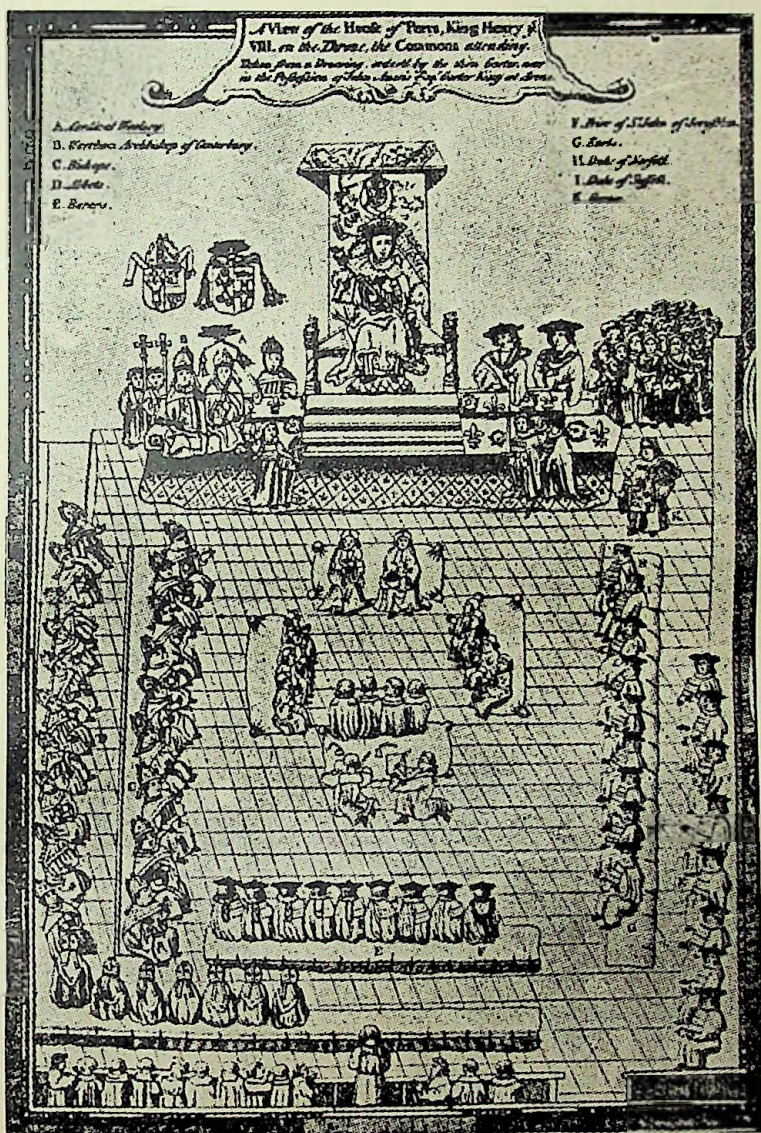 A View of the House of Peers, King Henry ye
VIII. on the Throne, the Commons attending.
Taken from a Drawing by the then Garter, now
in the Possession of John Anstis Esqr. Garter King at Arms.
A. Cardinal Wolsey.
B. Warham Archbishop of Canterbury.
C. Bishops.
D. Abbots.
E. Barons.
F. Prior of St. John of Jerusalem.
G. Earls.
H. Duke of Norfolk.
I. Duke of Suffolk.
K. Garter.
A
K
H
G
E
F